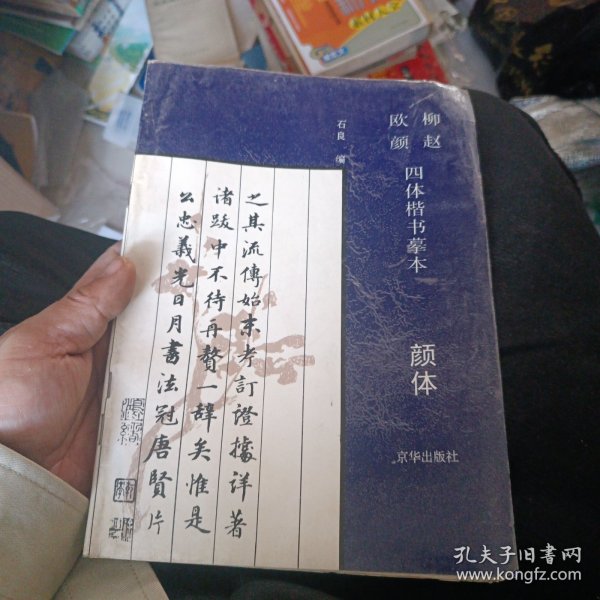 欧 柳
颜 赵
四体楷书摹本
石良 编
颜体
京华出版社
之其流傳始末考訂證據詳著
诸跋中不待再贅一辭矣惟是
公忠義光日月書法冠唐賢片
孔夫子旧书网
www.kongfz.com